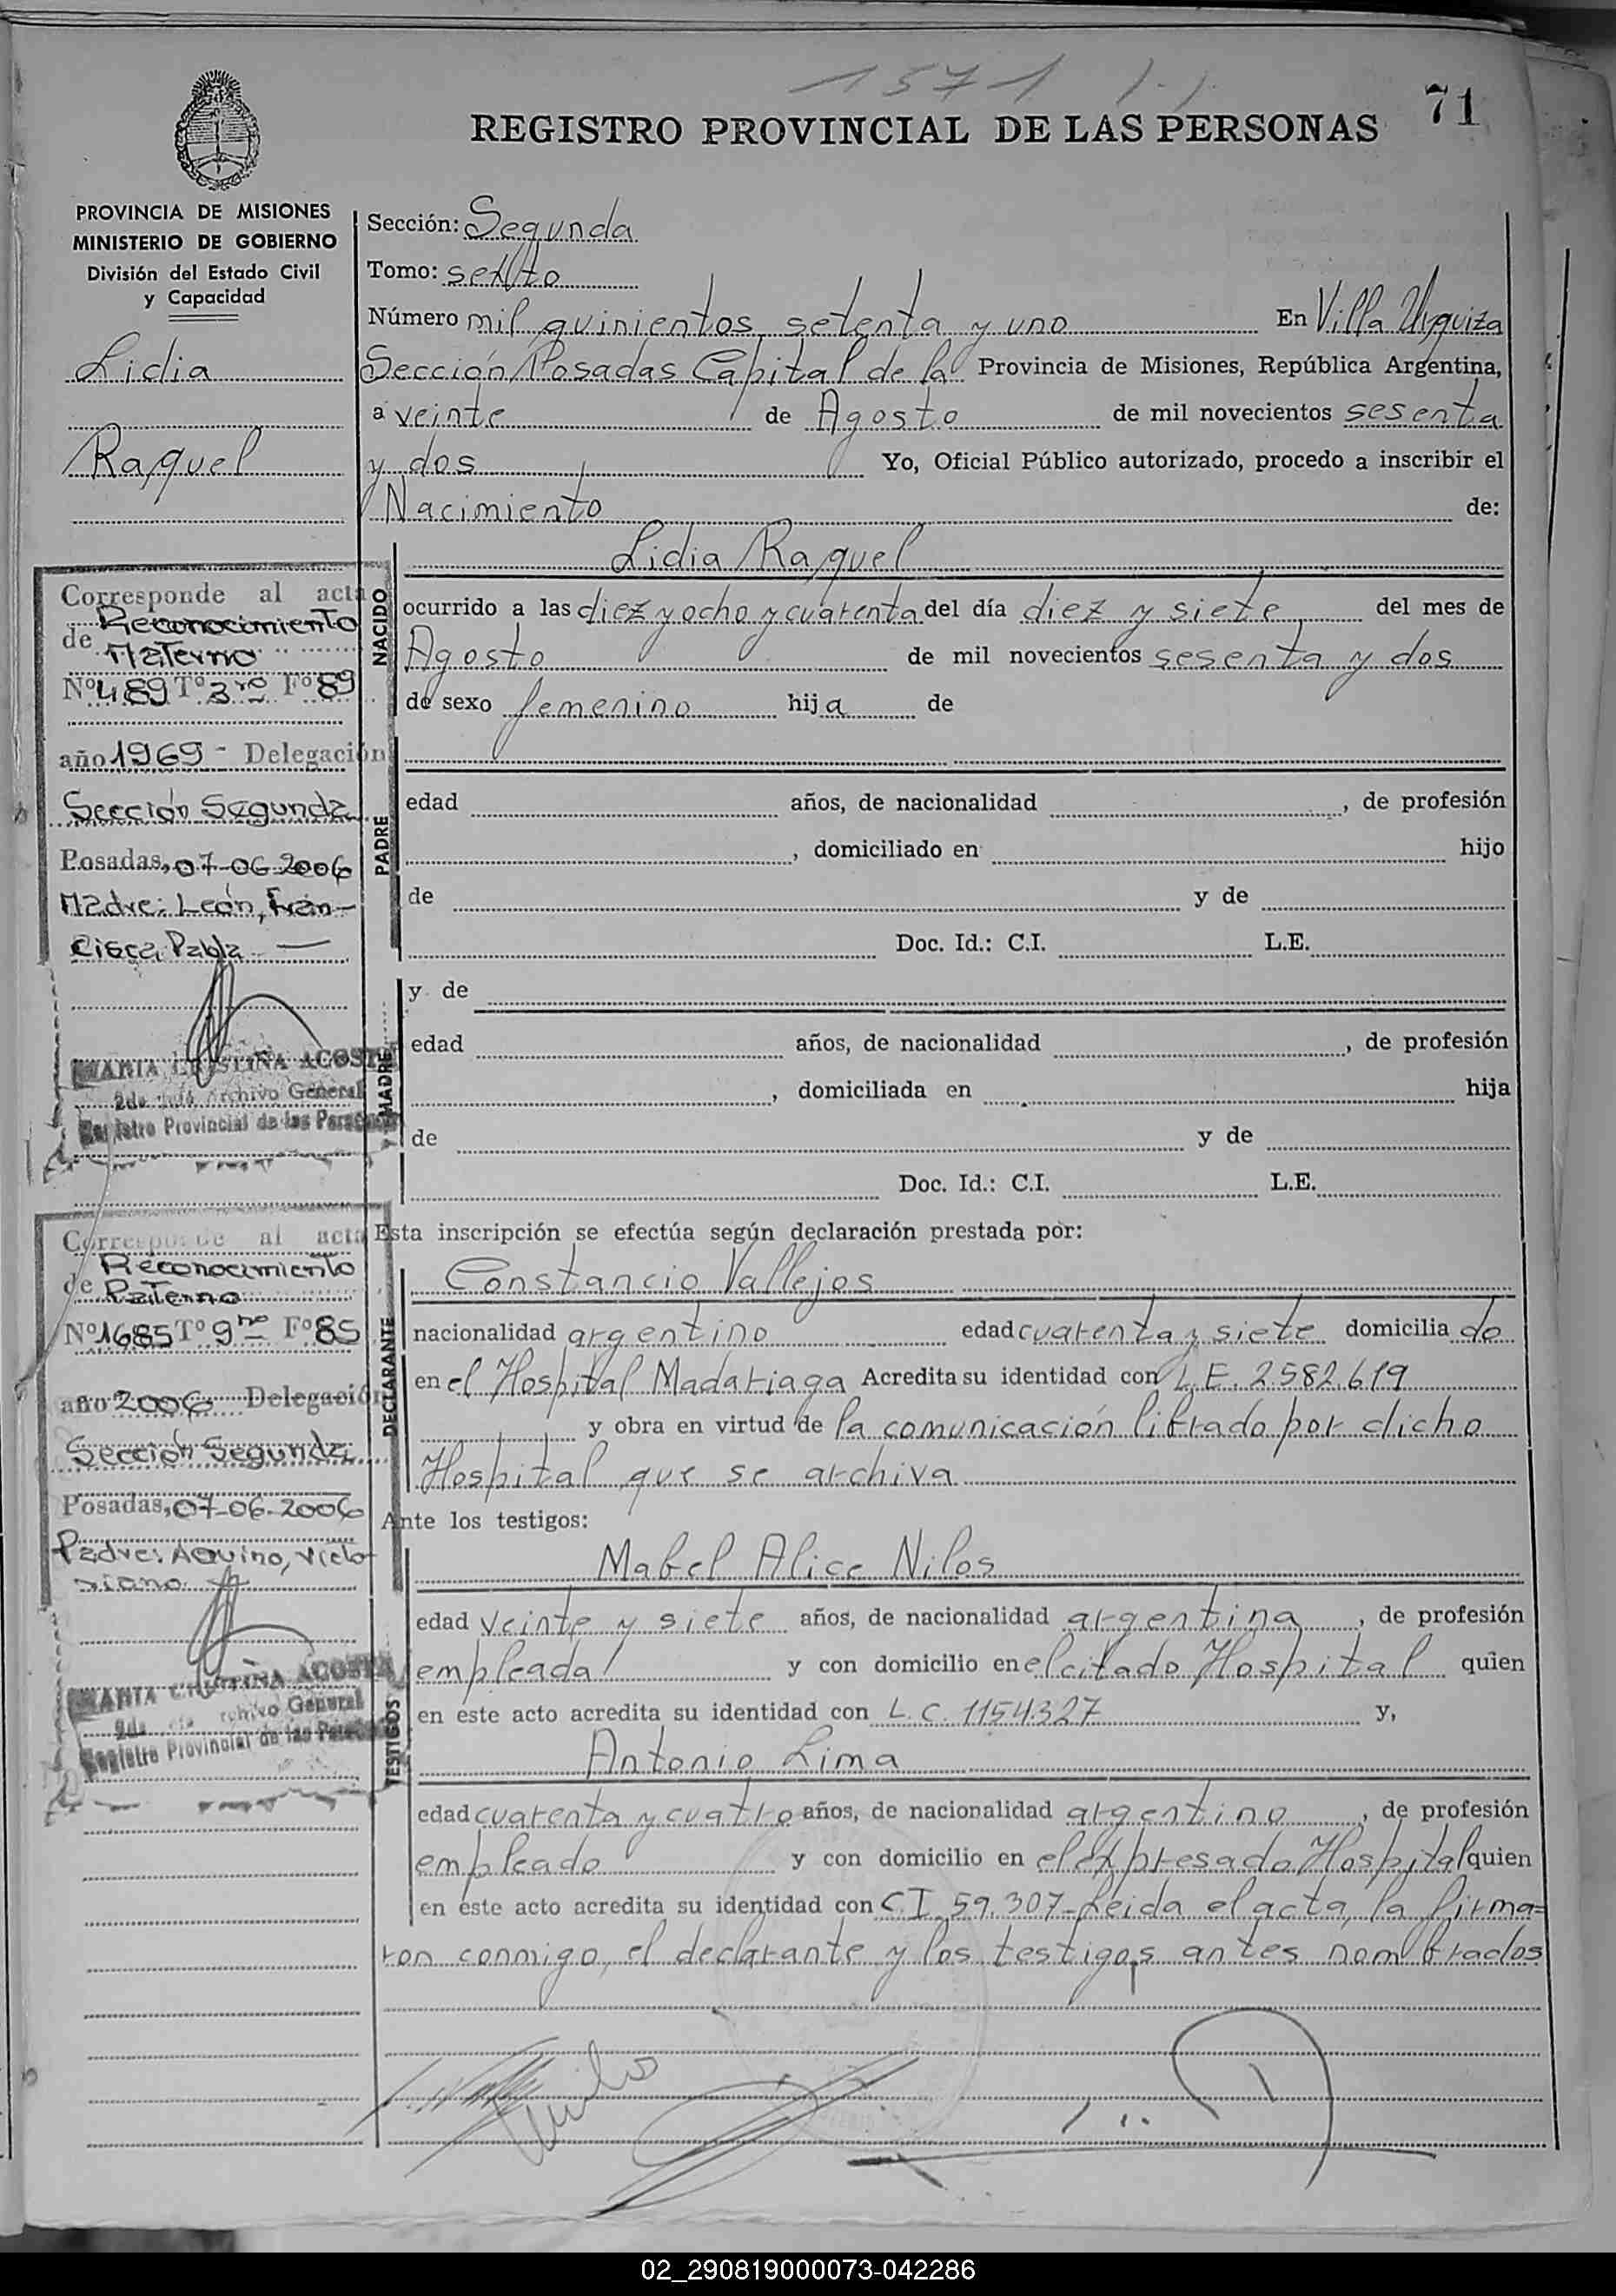 1571
71
REGISTRO PROVINCIAL DE LAS PERSONAS
PROVINCIA DE MISIONES
MINISTERIO DE GOBIERNO
División del Estado Civil
y Capacidad
Lidia
Raquel
Corresponde al acta
de Reconocimiento
Materno
Nº 489 Tº 3ro Fº 89
año 1969 - Delegación
Sección Segunda
Posadas, 07-06-2006
Madre: León, Fran-
cisca Pabla
MARIA CRISTINA ACOSTA
Archivo General
Registro Provincial de las Personas
Corresponde al acta
de Reconocimiento
Paterno
Nº 1685 Tº 9no Fº 85
año 2006 Delegación
Sección Segunda
Posadas, 07-06-2006
Padre: Aquino, Victo
riano
MARIA CRISTINA ACOSTA
Archivo General
Registro Provincial de las Personas
Sección: Segunda
Tomo: sexto
Número mil quinientos setenta y uno En Villa Urquiza
Sección Posadas Capital de la Provincia de Misiones, República Argentina,
a veinte de Agosto de mil novecientos sesenta
y dos Yo, Oficial Público autorizado, procedo a inscribir el
Nacimiento de:
NACIDO
Lidia Raquel
ocurrido a las diez y ocho y cuarenta del día diez y siete del mes de
Agosto de mil novecientos sesenta y dos
de sexo femenino hija de
PADRE
edad años, de nacionalidad , de profesión
, domiciliado en hijo
de y de
Doc. Id.: C.I. L.E.
Y MADRE
y de
edad años, de nacionalidad , de profesión
, domiciliada en hija
de y de
Doc. Id.: C.I. L.E.
Esta inscripción se efectúa según declaración prestada por:
DECLARANTE
Constancio Vallejos
nacionalidad argentino edad cuarenta y siete domicilia do
en el Hospital Madariaga Acredita su identidad con L.E. 2.582.619
y obra en virtud de la comunicación librado por dicho
Hospital que se archiva
Ante los testigos:
TESTIGOS
Mabel Alice Nilos
edad veinte y siete años, de nacionalidad argentina, de profesión
empleada y con domicilio en el citado Hospital quien
en este acto acredita su identidad con L.C. 1154.327 y,
Antonio Lima
edad cuarenta y cuatro años, de nacionalidad argentino, de profesión
empleado y con domicilio en el expresado Hospital quien
en este acto acredita su identidad con C.I. 59.307-Leida el acta, la firma=
ron conmigo, el declarante y los testigos antes nombrados
02_290819000073-042286